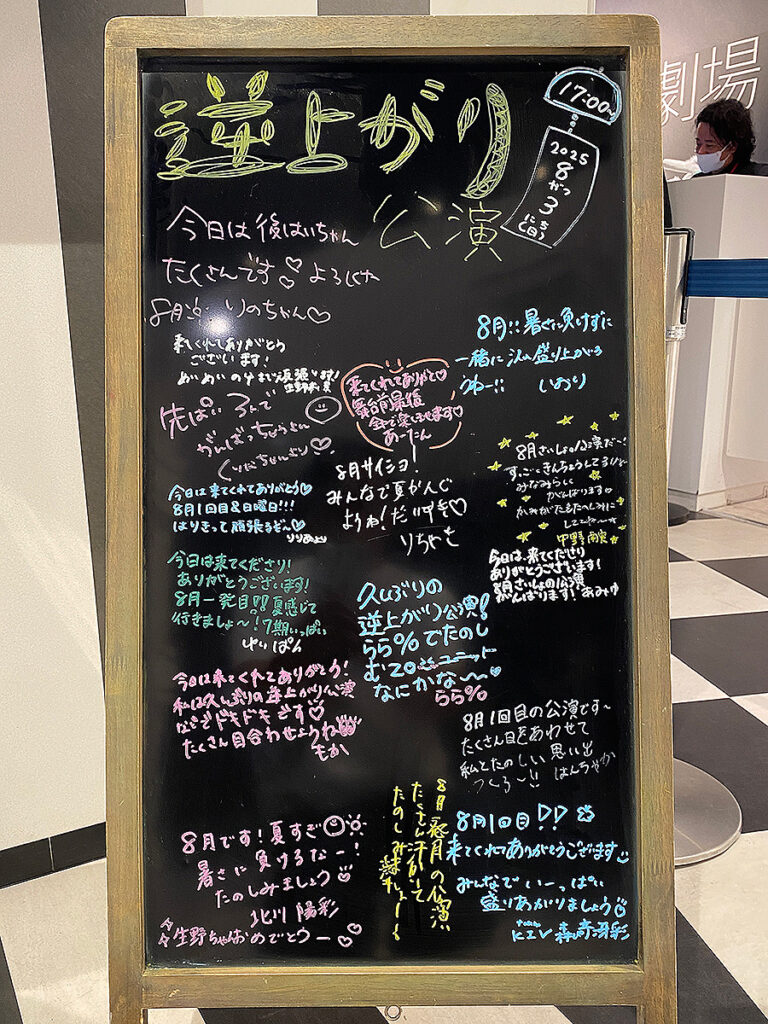 逆上がり
公演
17:00~
2025
8がつ
3にち
(日)
劇場
今日は後はいちゃん
たくさんです♡ よろしくね
8月 りのちゃん♡
来てくれてありがとう
ございます!
めいめいの分まで頑張ります!
生野莉奈
先ぱいろんで
がんばっちゃうよん
今日は来てくれてありがとう♡
8月1回目&日曜日!!!
はりきって頑張るぞ〜♡
今日は来てくださり!
ありがとうございます!
8月一発目!!夏感じて
行きましょ〜!7期いっぱい
ゆいぽん
今日は来てくれてありがとう!
私は久しぶりの逆上がり公演
なのでドキドキです♡
たくさん目合わせようね
もか
8月です!夏すぎ
暑さに負けるなー!
たのしみましょう
北川 陽彩
生野ちゃんおめでとうー♡
来てくれてありがと♡
舞台前最後
全力で楽しませます♡
あーたん
8月サイショ!
みんなで夏かんじ
ようね!だいすき♡
りちゃも
久しぶりの
逆上がり公演!
らら%でたのし
む20 ユニット
なにかな〜
らら%
8月!!暑さに負けずに
一緒に 盛り上がろ
うねー!! いおり
8月さいしょの公演だ〜!
すっごくきんちょうしてるけど
みなみらしく
がんばります♪
中野 南実
今日は、来てくださり
ありがとうございます!
8月さいしょの公演
がんばります! あみゆ
8月1回目の公演です〜
たくさん目をあわせて
私とたのしい思い出
つくろ〜!! はんちゃか
8月一発目の公演
たくさん汗かいて
たのしみましょー!
8月1回目!!
来てくれてありがとうございます
みんなでいーっぱい
盛りあがりましょう
KIV 森﨑冴彩